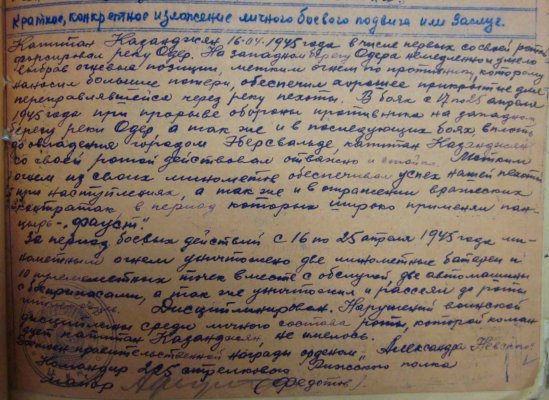 Краткое, конкретное изложение личного боевого подвига или заслуг.
Капитан Казанджян 16-04-1945 года в числе первых со своей ротой
форсировал реку Одер. На западном берегу Одера немедленно и умело
выбрав огневые позиции, метким огнем по противнику, которому
наносил большие потери, обеспечил хорошее прикрытие для
переправлявшейся через реку пехоты. В боях с 17 по 25 апреля
1945 года при прорыве обороны противника на западном
берегу реки Одер, а так же и в последующих боях вплоть
до овладения городом Эберсвальде, капитан Казанджян
со своей ротой действовал отважно и Метким
огнем из своих минометов обеспечивал успех нашей пехоты
при наступлениях, а так же и в отражении вражеских
контратак, в период которых широко применял пан-
цырь-„фауст“
За период боевых действий с 16 по 25 апреля 1945 года ми-
нометным огнем уничтожено две минометные батереи и
10 пулеметных точек вместе с обслугой, две автомашины
с боеприпасами, а так же уничтожен и рассеян до роты
Дисциплинирован. Нарушений воинской
дисциплины среди личного состава роты, которой коман-
дует капитан Казанджян, не имелось.
Достоен правительственной награды орденом „Александра Невского“
Командир 225 стрелкового Рижского полка
майор (Федотов)